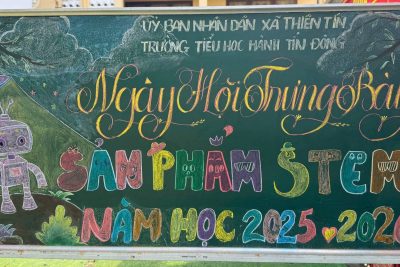 UỶ BAN NHÂN DÂN XÃ THIỆN TÍN
TRƯỜNG TIỂU HỌC HÀNH TÍN ĐÔNG
Ngày Hội Trưng Bày
SẢN PHẨM STEM
NĂM HỌC 2025 2026